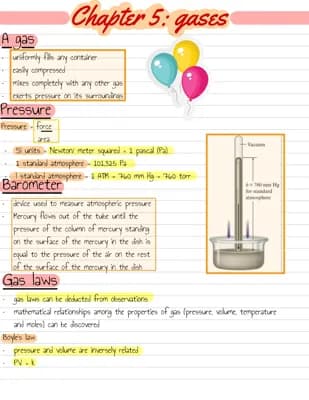 Chapter 5: gases
A gas
- uniformly fills any container
- easily compressed
- mixes completely with any other gas
- exerts pressure on its surroundings
Pressure
Pressure = force
area
- SI units = Newton/ meter squared = 1 pascal (Pa)
- 1 standard atmosphere = 101,325 Pa
- 1 standard atmosphere = 1 ATM = 760 mm Hg = 760 torr
Vacuum
h = 760 mm Hg
for standard
atmosphere
Barometer
- device used to measure atmospheric pressure
- Mercury flows out of the tube until the
pressure of the column of mercury standing
on the surface of the mercury in the dish is
equal to the pressure of the air on the rest
of the surface of the mercury in the dish
Gas laws
- gas laws can be deducted from observations
- mathematical relationships among the properties of gas (pressure, volume, temperature
and moles) can be discovered
Boyles law
- pressure and volume are inversely related
- PV = k